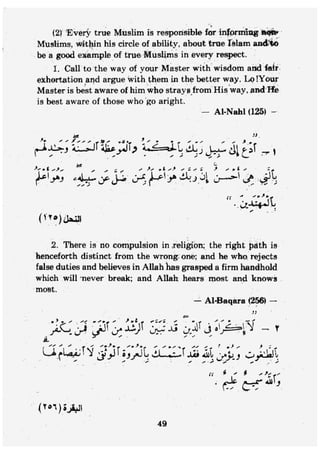 (2) Every true Muslim is responsible for informing non-
Muslims, within his circle of ability, about true Islam and to
be a good example of true Muslims in every respect.
1. Call to the way of your Master with wisdom and fair
exhortation and argue with them in the better way. Lo! Your
Master is best aware of him who strays from His way, and He
is best aware of those who go aright.
— Al-Nahl (125) —
١ — ادْعُ إِلَى سَبِيلِ رَبِّكَ بِالْحِكْمَةِ وَالْمَوْعِظَةِ الْحَسَنَةِ وَجَادِلْهُمْ
بِالَّتِي هِيَ أَحْسَنُ إِنَّ رَبَّكَ هُوَ أَعْلَمُ بِمَنْ ضَلَّ عَنْ سَبِيلِهِ وَهُوَ أَعْلَمُ
بِالْمُهْتَدِينَ . "
النحل (١٢٥)
2. There is no compulsion in religion; the right path is
henceforth distinct from the wrong one; and he who rejects
false duties and believes in Allah has grasped a firm handhold
which will never break; and Allah hears most and knows
most.
— Al-Baqara (256) —
٢ — لَا إِكْرَاهَ فِي الدِّينِ قَدْ تَبَيَّنَ الرُّشْدُ مِنَ الْغَيِّ فَمَنْ يَكْفُرْ
بِالطَّاغُوتِ وَيُؤْمِنْ بِاللَّهِ فَقَدِ اسْتَمْسَكَ بِالْعُرْوَةِ الْوُثْقَى لَا انْفِصَامَ لَهَا
وَاللَّهُ سَمِيعٌ عَلِيمٌ . "
البقرة (٢٥٦)
49